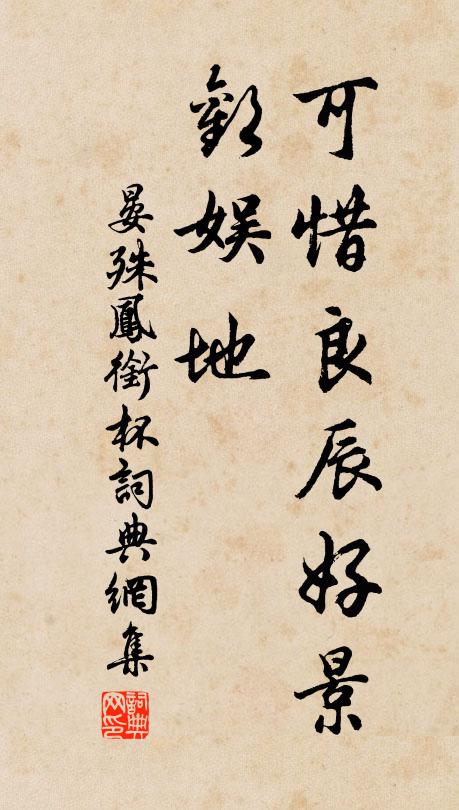 可惜良辰好景
歡娛地
晏殊鳳銜杯詞典網集
詞典网印